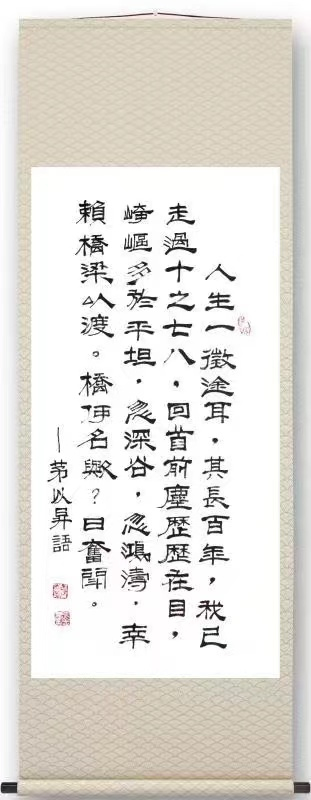 人生一徵途耳，其長百年，我已
走過十之七八，回首前塵歷歷在目，
崎嶇多於平坦，忽深谷，忽鴻濤，幸
賴橋梁以渡。橋何名歟？曰奮鬥。
—茅以昇語